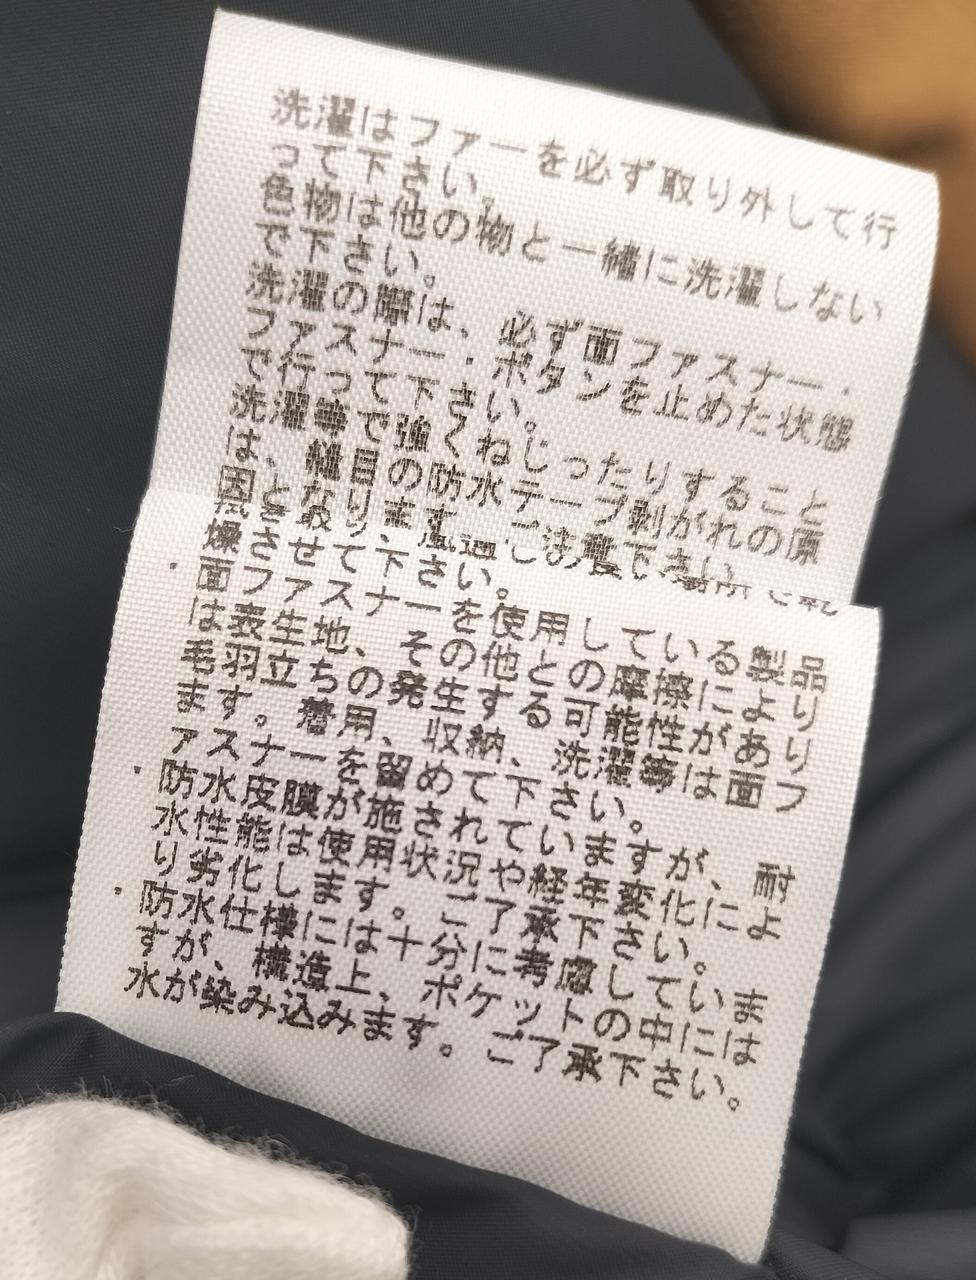 洗濯はファーを必ず取り外して行
って下さい。
色物は他の物と一緒に洗濯しない
で下さい。
洗濯の際は、必ず面ファスナー・
ファスナー・ボタンを止めた状態
で行って下さい。
洗濯等で強くねじったりすること
は、縫目の防水テープ剥がれの原
因となります。ご注意下さい。
燥させて下さい。
・面ファスナーを使用している製品
は表生地、その他との摩擦により
毛羽立ちの発生する可能性があり
ます。着用、収納、洗濯等は面フ
ァスナーを留めて下さい。
・防水皮膜が施されていますが、耐
水性能は使用状況や経年変化によ
り劣化します。ご了承下さい。
・防水仕様には十分に考慮していま
すが、構造上、ポケットの中には
水が染み込みます。ご了承下さい。